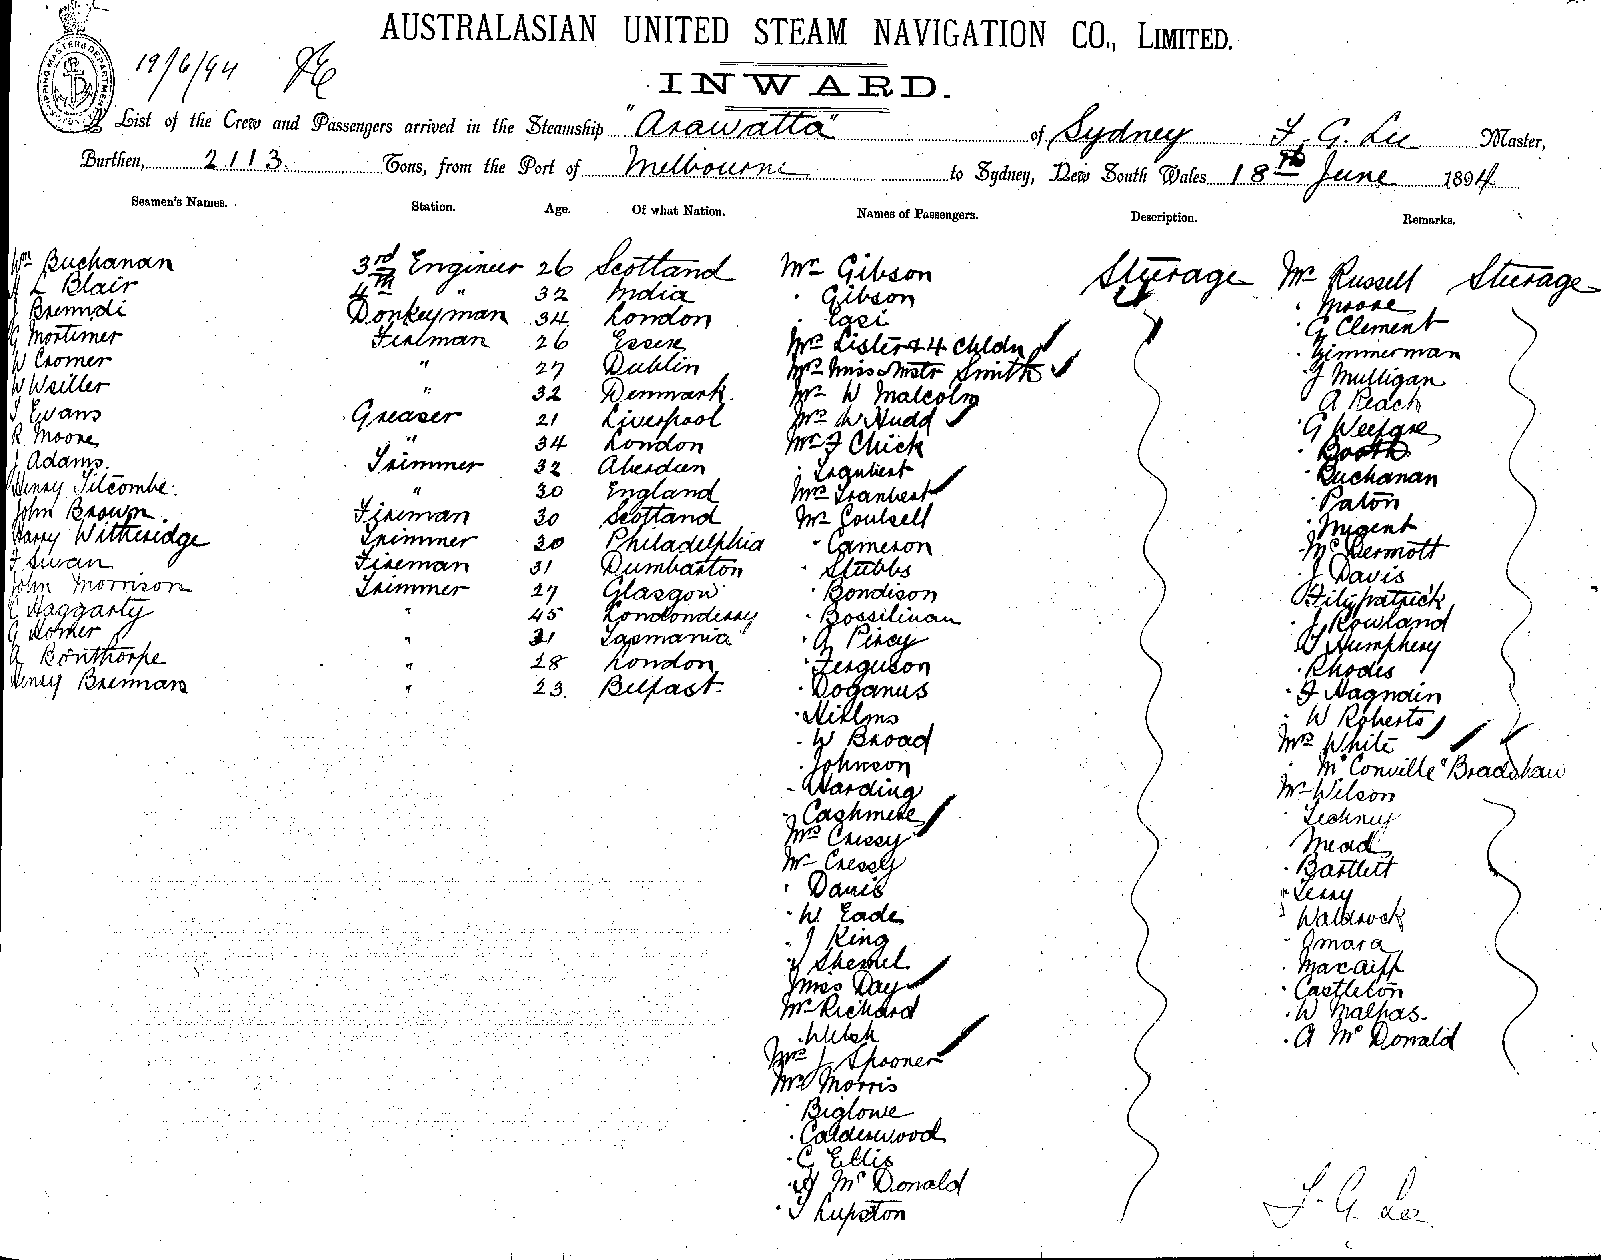 AUSTRALASIAN UNITED STEAM NAVIGATION CO., LIMITED.
19/6/94
INWARD.
A List of the Crew and Passengers arrived in the Steamship "Arawatta" of Sydney F. G. Lee Master,
Burthen, 2113. Tons, from the Port of Melbourne to Sydney, New South Wales 18th June 1894
Seamen's Names. Station. Age. Of what Nation. Names of Passengers. Description. Remarks.
Wm Buchanan 3rd Engineer 26 Scotland
L Blair 4th " 32 India
J 34 London Donkeyman
G Mortimer Fireman 26 Essex
W Cromer " 27 Dublin
W Weiller " 32 Denmark
T Evans Greaser 21 Liverpool
R Moore " 34 London
J Adams Trimmer 32 Aberdeen
Henry Titcombe " 30 England
John Brown Fireman 30 Scotland
Harry Witheridge Trimmer 30 Philadelphia
F Swan Fireman 31 Dumbarton
John Morrison Trimmer 27 Glasgow
C Haggarty " 45 Londonderry
G Homer " 31 Tasmania
A Bonthorpe " 28 London
Henry Brennan " 23 Belfast
Mr Gibson Steerage
" Gibson
" Egsi
Mrs Lister & 4 Chldn
Mrs Miss & Mstr Smith
Mr W Malcolm
Mrs W Hudd
Mr J Chick
Mrs
Mr Coulsell
" Cameron
" Stubbs
" Bondison
" G Pircy
" Ferguson
" Doganus
" W Broad
" Johnson
" Harding
" Cashmere
Mrs Cressy
Mr Cressy
" Davis
" W Eade
" J King
" Shemel
Miss Day
Mr Richard
" Welsh
Mrs J Spooner
Mr Morris
Biglowe
" Calderwood
" C Ellis
" Mc Donald
" T Lupston
Mr Russell Steerage
" Moore
" G Clement
" Zimmerman
" J Mulligan
A Peach
" G
" Booth
" Buchanan
" Paton
" Nugent
" McDermott
" J Davis
Fitzpatrick
" J Rowland
Humphery
" Rhodes
" J Hagndin
" W Roberts
Mrs White
" McConville " Bradshaw
Mr Wilson
" Mead
" Bartlett
" Terry
" Waldrock
" Omara
" Macaiff
" Castleton
" W Malpas
" A McDonald
F. G. Lee